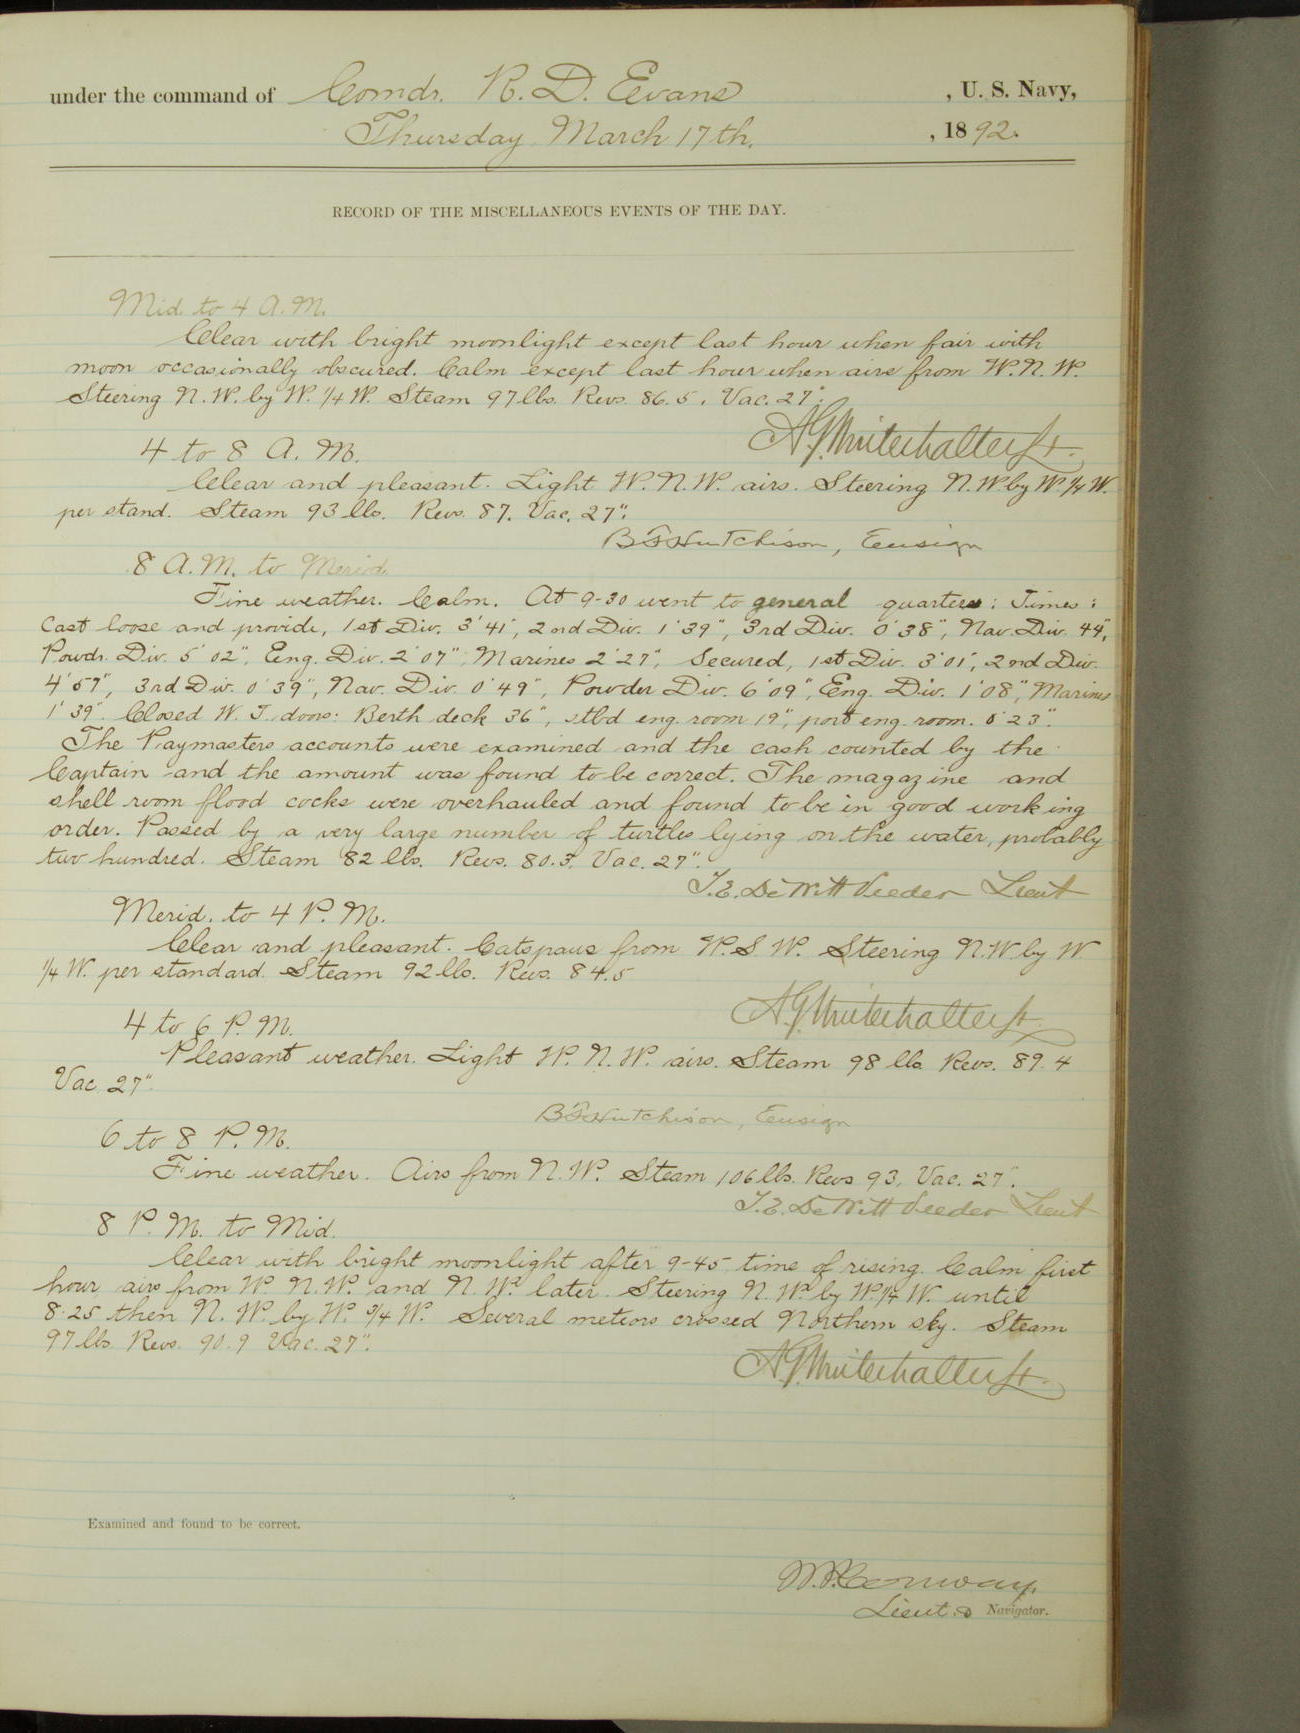 under the command of Comdr. R. D. Evans, U. S. Navy,
Thursday March 17th., 1892.
RECORD OF THE MISCELLANEOUS EVENTS OF THE DAY.
Mid. to 4 A. M.
Clear with bright moonlight except last hour when fair with
moon occasionally obscured. Calm except last hour when airs from W. N. W.
Steering N. W. by W. 1/4 W. Steam 97 lbs. Revs. 86.5. Vac. 27".
A. G. Winterhalter Lt.
4 to 8 A. M.
Clear and pleasant. Light W. N. W. airs. Steering N. W. by W. 1/4 W.
per stand. Steam 93 lbs. Revs. 87. Vac. 27".
B. F. Hutchison, Ensign
8 A. M. to Merid.
Fine weather. Calm. At 9-30 went to general quarters: Times:
Cast loose and provide, 1st Div. 3' 41", 2nd Div. 1' 39", 3rd Div. 0' 38", Nav. Div. 44",
Powdr. Div. 5' 02", Eng. Div. 2' 07", Marines 2' 27", Secured, 1st Div. 3' 01", 2nd Div.
4' 57", 3rd Div. 0' 39", Nav. Div. 0' 49", Powder Div. 6' 09", Eng. Div. 1' 08", Marines
1' 39". Closed W. T. doors: Berth deck 36", stbd eng. room 19", port eng. room. 0' 23".
The Paymasters accounts were examined and the cash counted by the
Captain and the amount was found to be correct. The magazine and
shell room flood cocks were overhauled and found to be in good working
order. Passed by a very large number of turtles lying on the water, probably
two hundred. Steam 82 lbs. Revs. 80.3. Vac. 27".
T. E. DeWitt Veeder Lieut
Merid. to 4 P. M.
Clear and pleasant. Catspaws from W. S. W. Steering N. W. by W
1/4 W. per standard. Steam 92 lbs. Revs. 84.5
A. G. Winterhalter Lt.
4 to 6 P. M.
Pleasant weather. Light W. N. W. airs. Steam 98 lbs Revs. 89.4
Vac 27".
B. F. Hutchison, Ensign
6 to 8 P. M.
Fine weather. Airs from N. W. Steam 106 lbs. Revs 93. Vac. 27".
T. E. DeWitt Veeder Lieut
8 P. M. to Mid.
Clear with bright moonlight after 9-45 time of rising. Calm first
hour airs from W. N. W. and N. Wd later. Steering N. Wd by W. 1/4 W. until
8.25 then N. W. by W. 3/4 W. Several meteors crossed Northern sky. Steam
97 lbs Revs. 90.9 Vac. 27".
A. G. Winterhalter Lt.
Examined and found to be correct.
Conway,
Lieut. & Navigator.